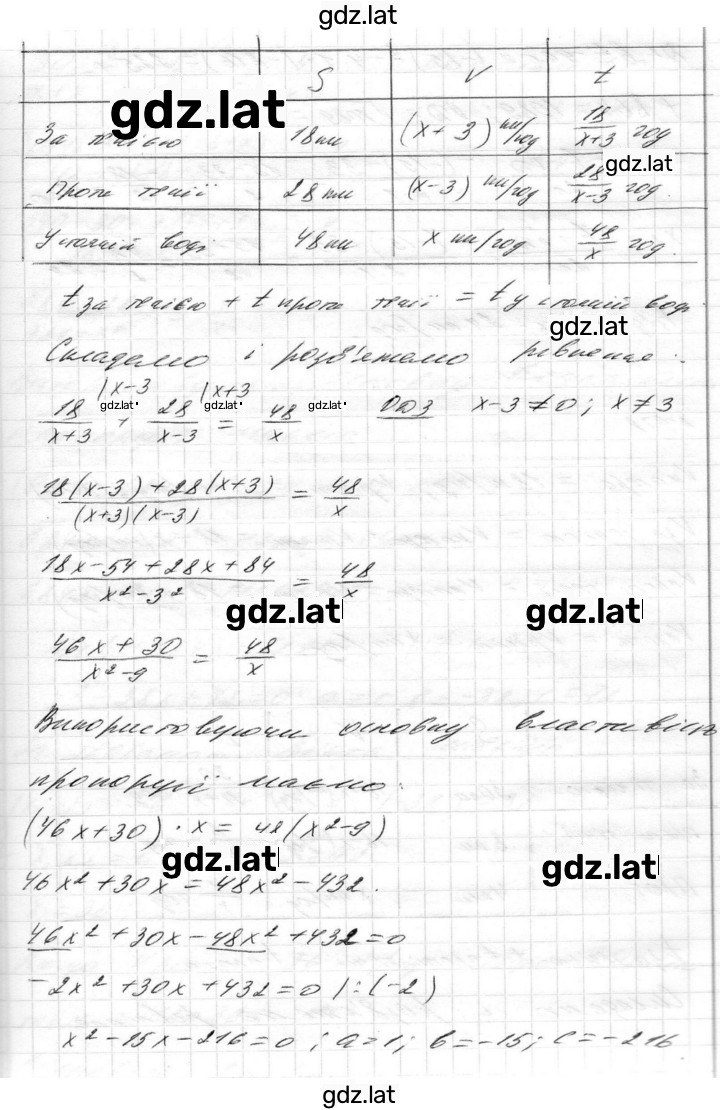 gdz.lat
S V t
gdz.lat
За течією 18 км (x+3) км/год 18/(x+3) год
gdz.lat
Проти течії 28 км (x-3) км/год 28/(x-3) год.
У стоячій воді 48 км x км/год 48/x год.
t за течією + t проти течії = t у стоячій воді
gdz.lat
Складемо і розв'яжемо рівняння:
18/(x+3) |x-3 + 28/(x-3) |x+3 = 48/x ОДЗ x-3≠0; x≠3
gdz.lat gdz.lat gdz.lat
(18(x-3)+28(x+3))/((x+3)(x-3)) = 48/x
(18x-54+28x+84)/(x²-3²) = 48/x
gdz.lat gdz.lat
(46x+30)/(x²-9) = 48/x
Використовуючи основну властивість
пропорції маємо:
(46x+30)·x = 48(x²-9)
gdz.lat gdz.lat
46x²+30x = 48x²-432.
46x²+30x-48x²+432=0
-2x²+30x+432=0 |:(-2)
x²-15x-216=0; a=1; b=-15; c=-216
gdz.lat